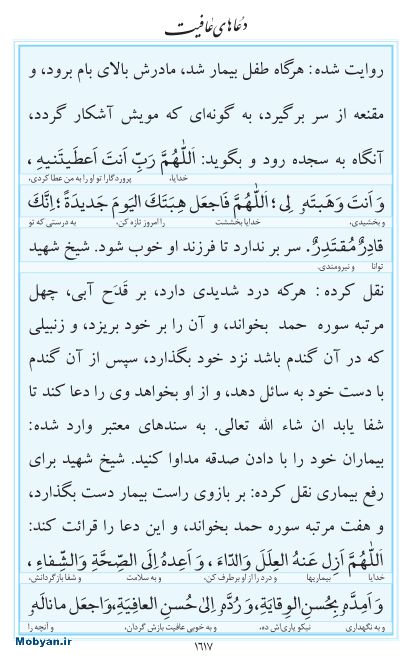 دعاهای عافیت
روایت شده: هرگاه طفل بیمار شد، مادرش بالای بام برود، و
مقنعه از سر برگیرد، به گونه‌ای که مویش آشکار گردد،
آنگاه به سجده رود و بگوید: اَللّٰهُمَّ رَبِّ اَنتَ اَعطَیتَنیهِ ،
خدایا، پروردگارا تو او را به من عطا کردی،
وَ اَنتَ وَهَبتَهو لِی؛ اَللّٰهُمَّ فَاجعَل هِبَتَكَ الیَومَ جَدیدَةً ؛ اِنَّكَ
و بخشیدی، خدایا بخششت را امروز تازه کن، به درستی که تو
قادِرٌ مُقتَدِرٌ. سر بر ندارد تا فرزند او خوب شود. شیخ شهید
توانا و نیرومندی.
نقل کرده: هرکه درد شدیدی دارد، بر قَدَح آبی، چهل
مرتبه سوره حمد بخواند، و آن را بر خود بریزد، و زنبیلی
که در آن گندم باشد نزد خود بگذارد، سپس از آن گندم
با دست خود به سائل دهد، و از او بخواهد وی را دعا کند تا
شفا یابد ان شاء الله تعالی. به سندهای معتبر وارد شده:
بیماران خود را با دادن صدقه مداوا کنید. شیخ شهید برای
رفع بیماری نقل کرده: بر بازوی راست بیمار دست بگذارد،
و هفت مرتبه سوره حمد بخواند، و این دعا را قرائت کند:
اَللّٰهُمَّ اَزِل عَنهُ العِلَلَ وَ الدّاءَ ، وَ اَعِدهُ اِلَی الصِّحَّةِ وَ الشِّفاءِ ،
خدایا بیماریها و درد را از او برطرف کن، و به سلامت و شفا بازگردانش،
وَ اَمِدَّه بِحُسنِ الوِقایَةِ، وَ رُدَّه اِلیٰ حُسنِ العافِیَةِ، وَ اجعَل ما نالَهو
و به نگهداری نیکو یاری‌اش ده، و به خوبی عافیت بازش گردان، و آنچه را
۱۶۱۷
Mobyan.ir